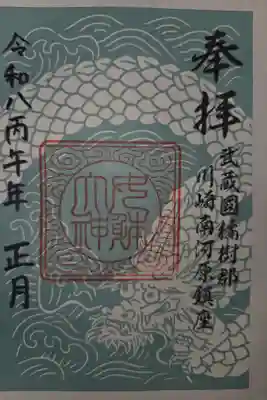 奉拝
武蔵國橘樹郡
川崎南河原鎮座
女躰大神
令和八丙午年 正月